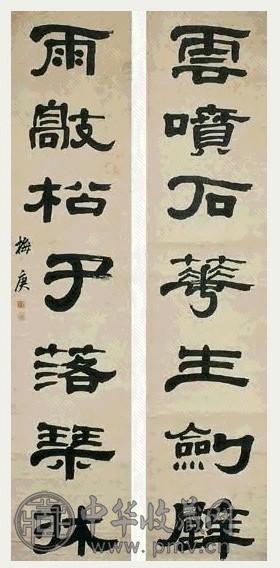 雲噴石華生劍壁
雨敲松子落琴牀
梅庚
中华收藏网